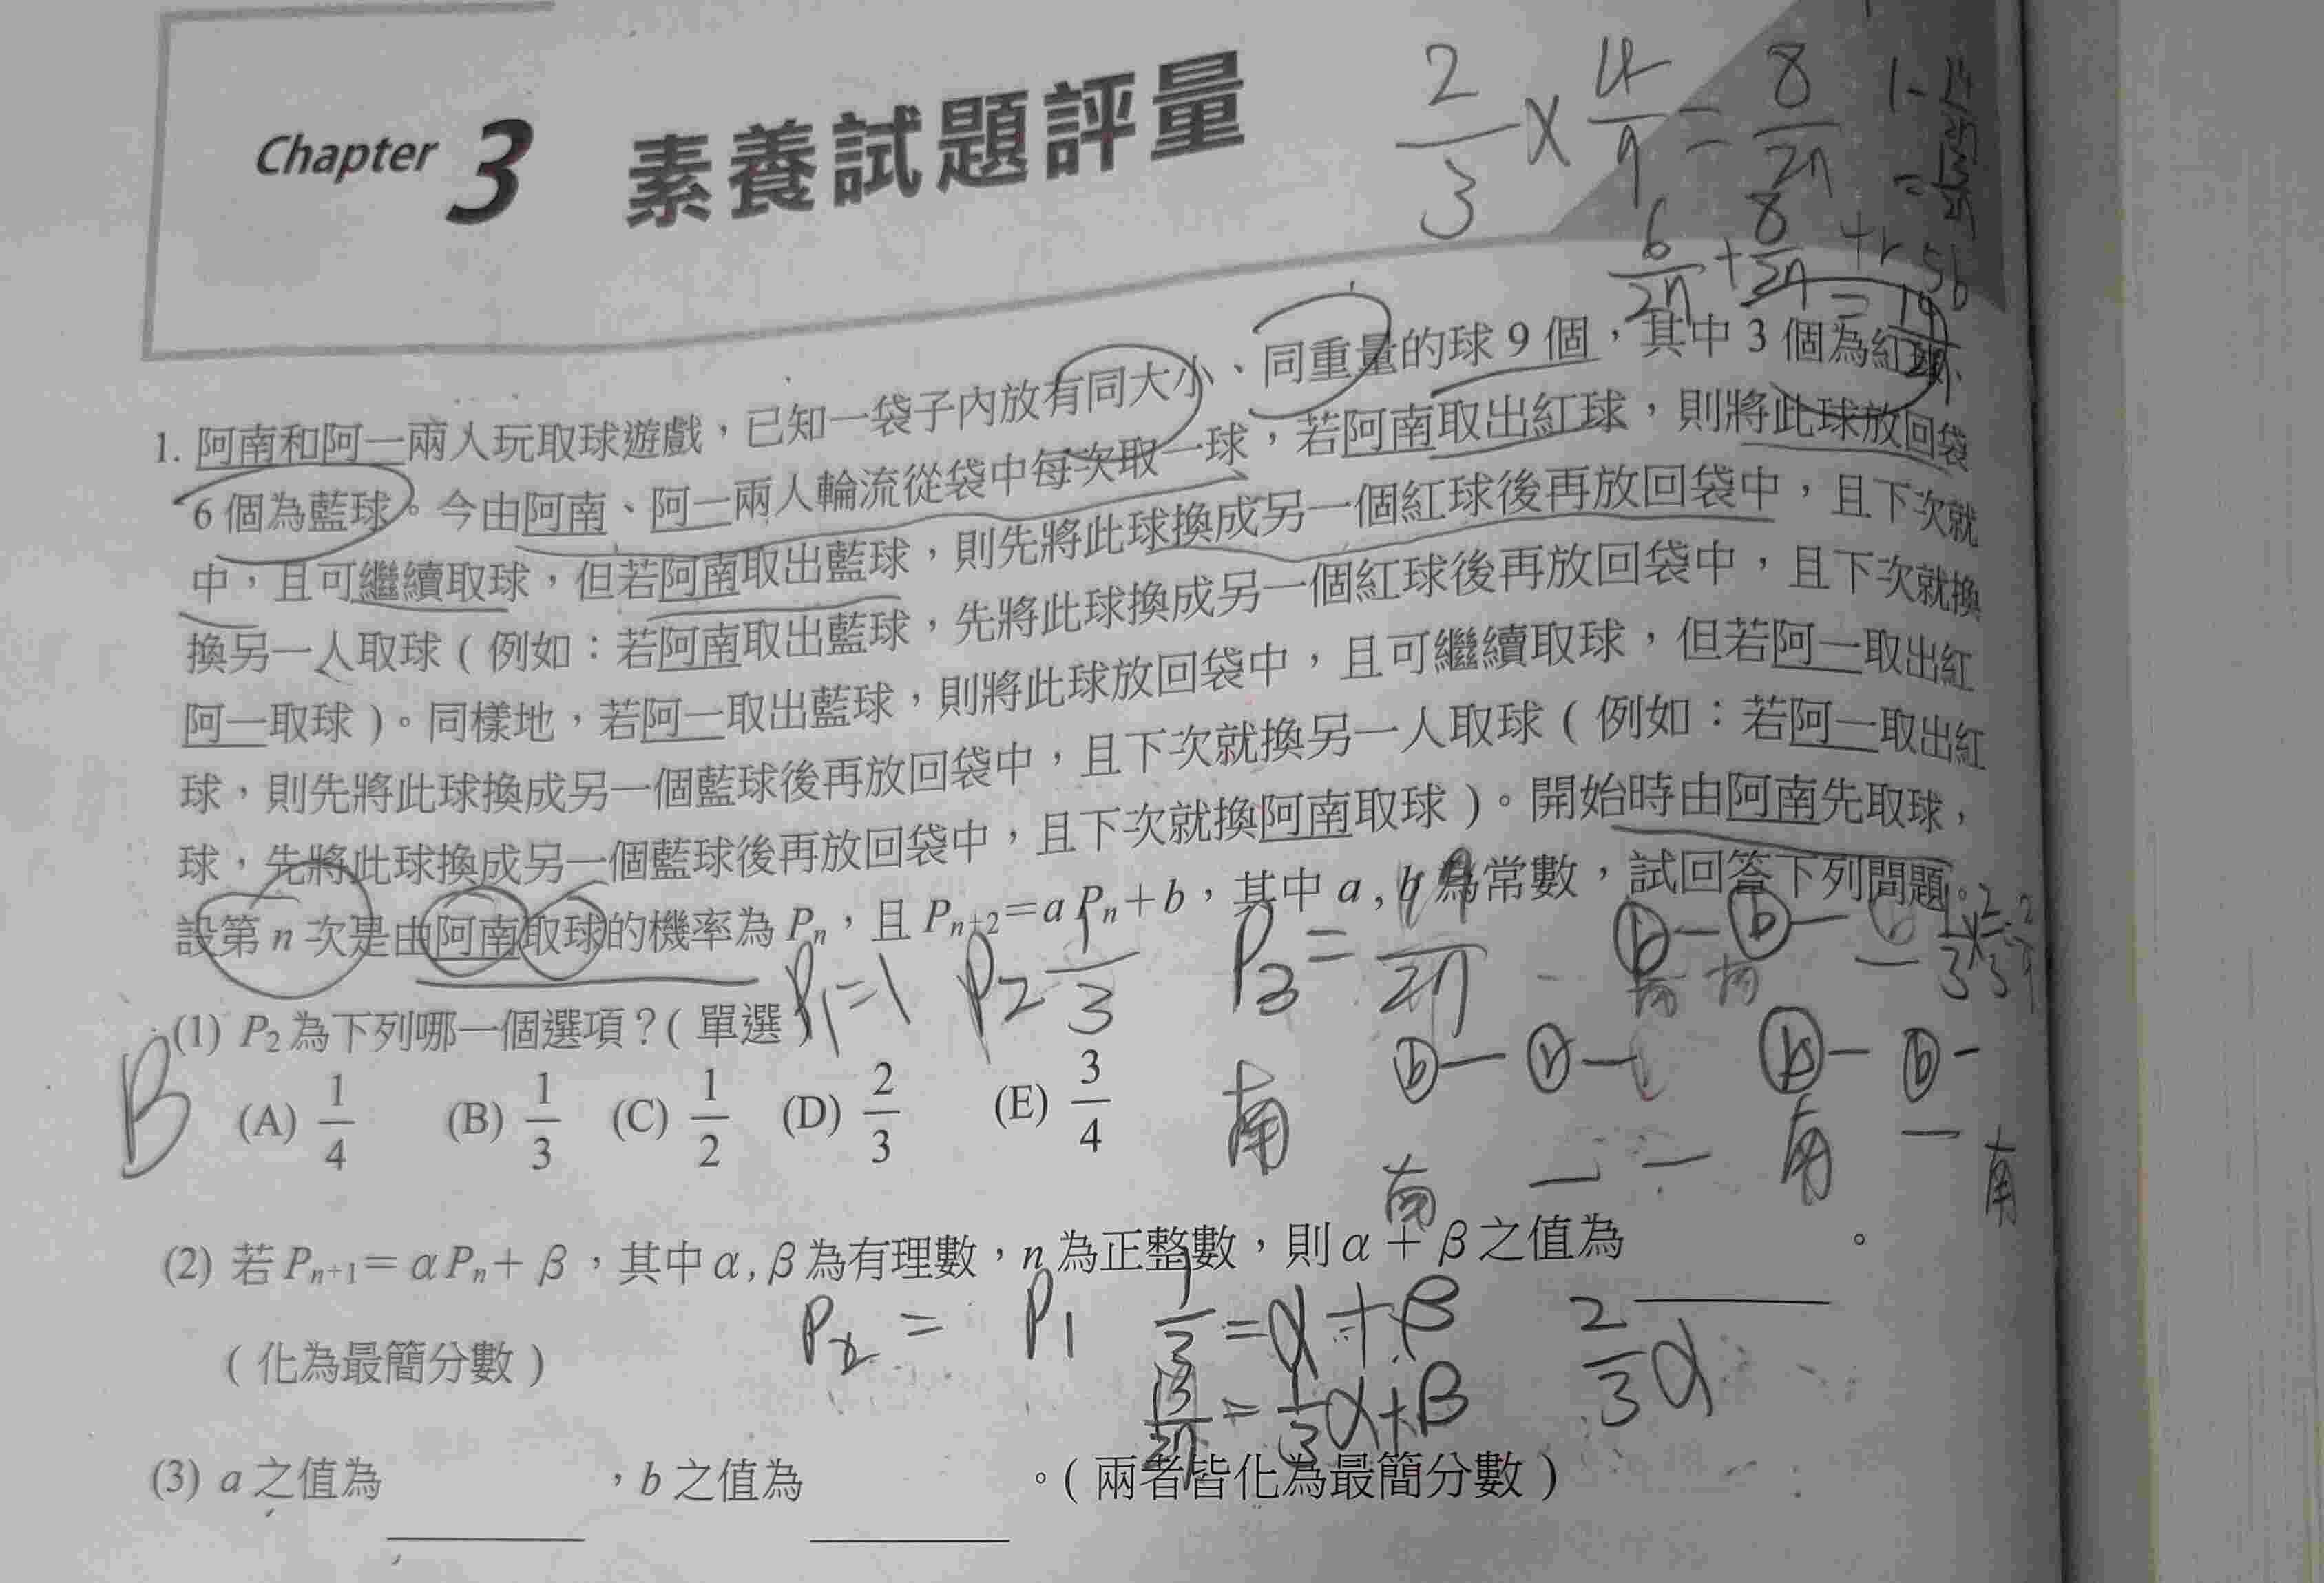 Chapter 3 素養試題評量
2/3 × 4/9 = 8/27
6/27 + 8/27 = 14
1. 阿南和阿一兩人玩取球遊戲，已知一袋子內放有同大小、同重量的球 9 個，其中 3 個為紅球、
6 個為藍球。今由阿南、阿一兩人輪流從袋中每次取一球，若阿南取出紅球，則將此球放回袋
中，且可繼續取球，但若阿南取出藍球，則先將此球換成另一個紅球後再放回袋中，且下次就
換另一人取球 ( 例如：若阿南取出藍球，先將此球換成另一個紅球後再放回袋中，且下次就換
阿一取球 )。同樣地，若阿一取出藍球，則將此球放回袋中，且可繼續取球，但若阿一取出紅
球，則先將此球換成另一個藍球後再放回袋中，且下次就換另一人取球 ( 例如：若阿一取出紅
球，先將此球換成另一個藍球後再放回袋中，且下次就換阿南取球 )。開始時由阿南先取球，
設第 n 次是由阿南取球的機率為 Pₙ，且 Pₙ₊₂ = a Pₙ + b，其中 a , b 為常數，試回答下列問題。
P₁ = 1 P₂ 1/3 P₃ =
(1) P₂ 為下列哪一個選項？( 單選 )
B
(A) 1/4 (B) 1/3 (C) 1/2 (D) 2/3 (E) 3/4
南
南 一 一 南 一 南
(2) 若 Pₙ₊₁ = α Pₙ + β，其中 α , β 為有理數，n 為正整數，則 α + β 之值為 。
P₂ = P₁ 1/3 = α + β 2/3 α
( 化為最簡分數 )
= 1/3 α + β
(3) a 之值為 ，b 之值為 。( 兩者皆化為最簡分數 )